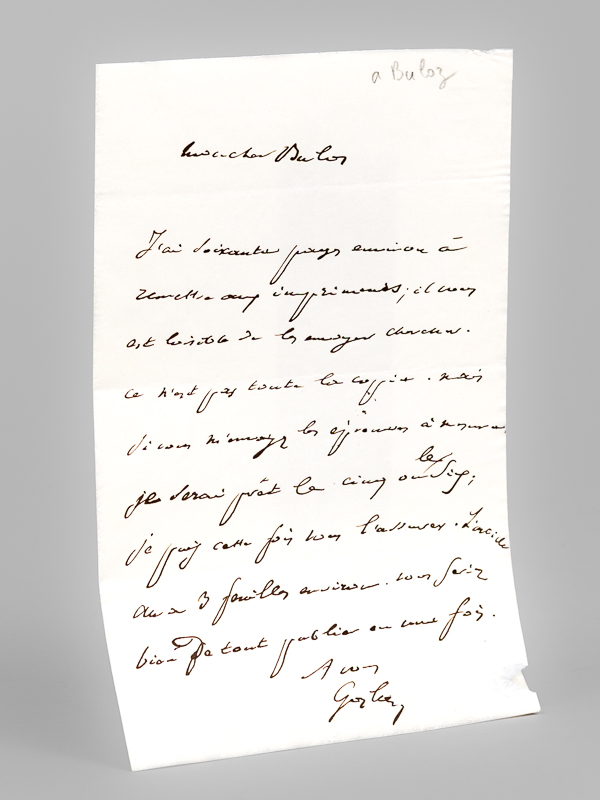 a Buloz
Mon cher Buloz
J'ai soixante pages environ à
remettre aux imprimeurs; il vous
est loisible de les envoyer chercher.
Ce n'est pas toute la copie. mais
si vous m'envoyez les épreuves à mesure
je serai prêt le cinq ou le six;
je puis cette fois vous l'assurer. L'article
aura 3 feuilles environ. vous ferez
bien de tout publier en une fois.
A vous
Gozlan